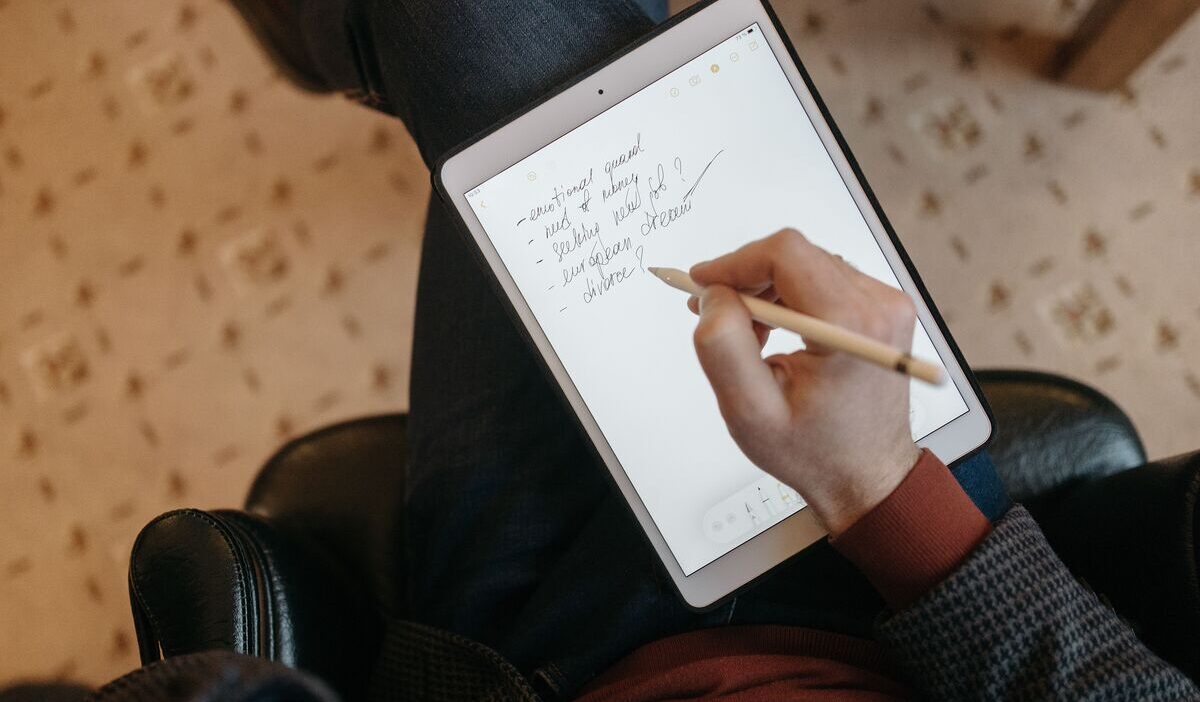 - emotional guard
- need of money
- seeking new job ?
- european dream
- divorce ?